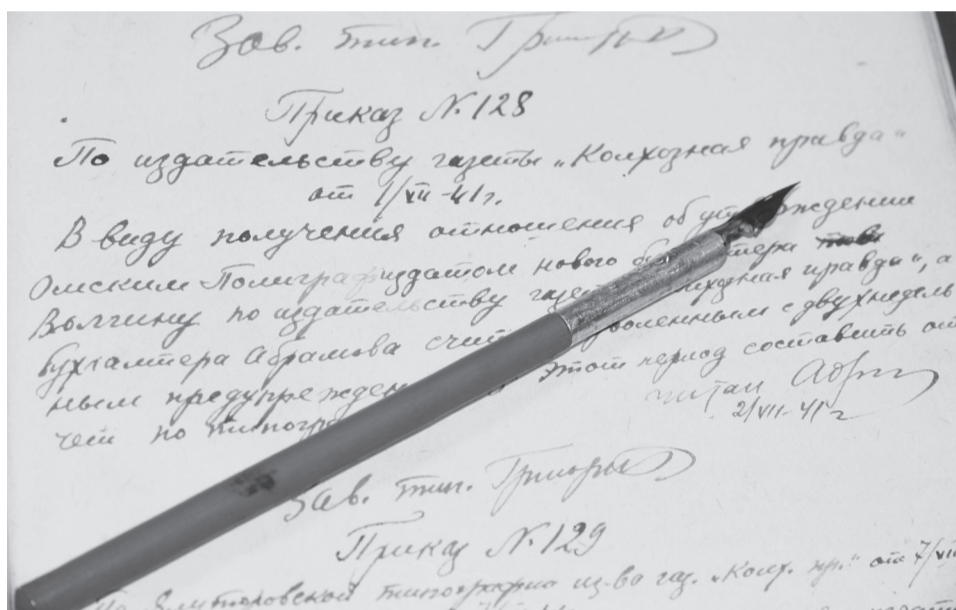 Зав. тип.
Приказ №128
По издательству газеты „Колхозная правда“
от 1/VII-41г.
В виду получения отношения об утверждении
Омским Полиграфиздатом нового бухгалтера
Волгину по издательству газеты „Колхозная правда“, а
бухгалтера Абрамова считать уволенным с двухнедель
ным предупреждением этот период составить от
чет по типогр
читал
2/VII-41г
Зав. тип.
Приказ №129
Ялуторовской типографии из-ва газ. „Колх. пр.“ от 7/VII